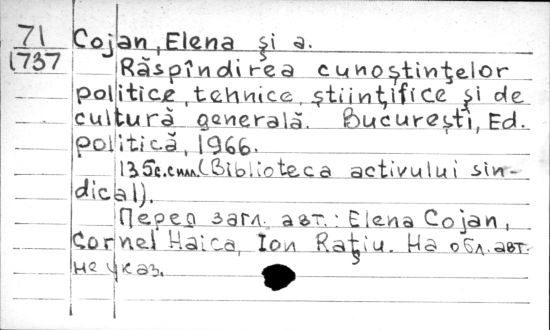 71 Cojan, Elena şi a.
1737
Răspîndirea cunoştinţelor
politice, tehnice, ştiinţifice şi de
cultură generală. Bucureşti, Ed.
politică, 1966.
135с. с илл. (Biblioteca activului sin-
dical).
Перед загл. авт.: Elena Cojan,
Cornel Haica, Ion Raţiu. На обл. авт.
не указ.